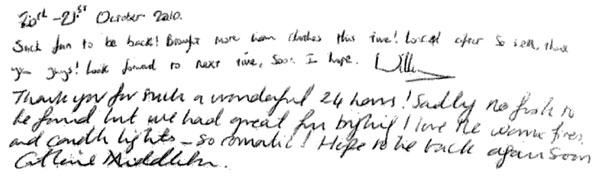 20th - 21st October 2010.
Such fun to be back! Brought more warm clothes this time! Looked after so well, thank
you guys! Look forward to next time, soon I hope. William
Thank you for such a wonderful 24 hours! Sadly no fish to
be found but we had great fun trying! I love the warm fires
and candle lights - so romantic! Hope to be back again soon
Catherine Middleton.